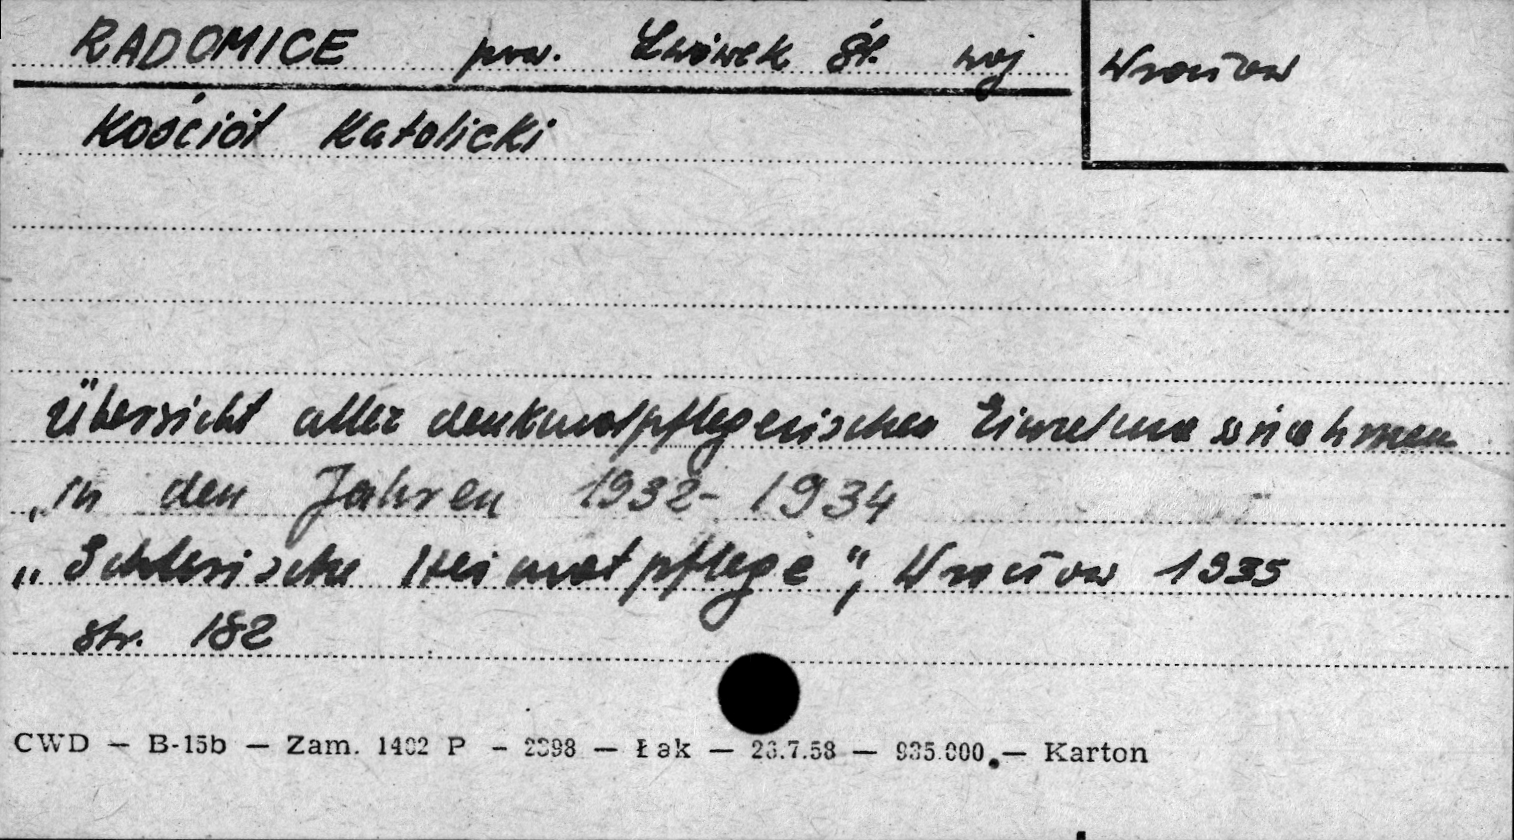 RADOMICE pow. Lwówek Śl. woj Wrocław
Kościół Katolicki
Übersicht aller denkmalpflegerischen Einzelmassnahmen
„in den Jahren 1932-1934
„Schlesische Heimatpflege", Wrocław 1935
str. 182
CWD — B-15b — Zam. 1402 P — 2398 — Łak — 23.7.58 — 935.000. — Karton